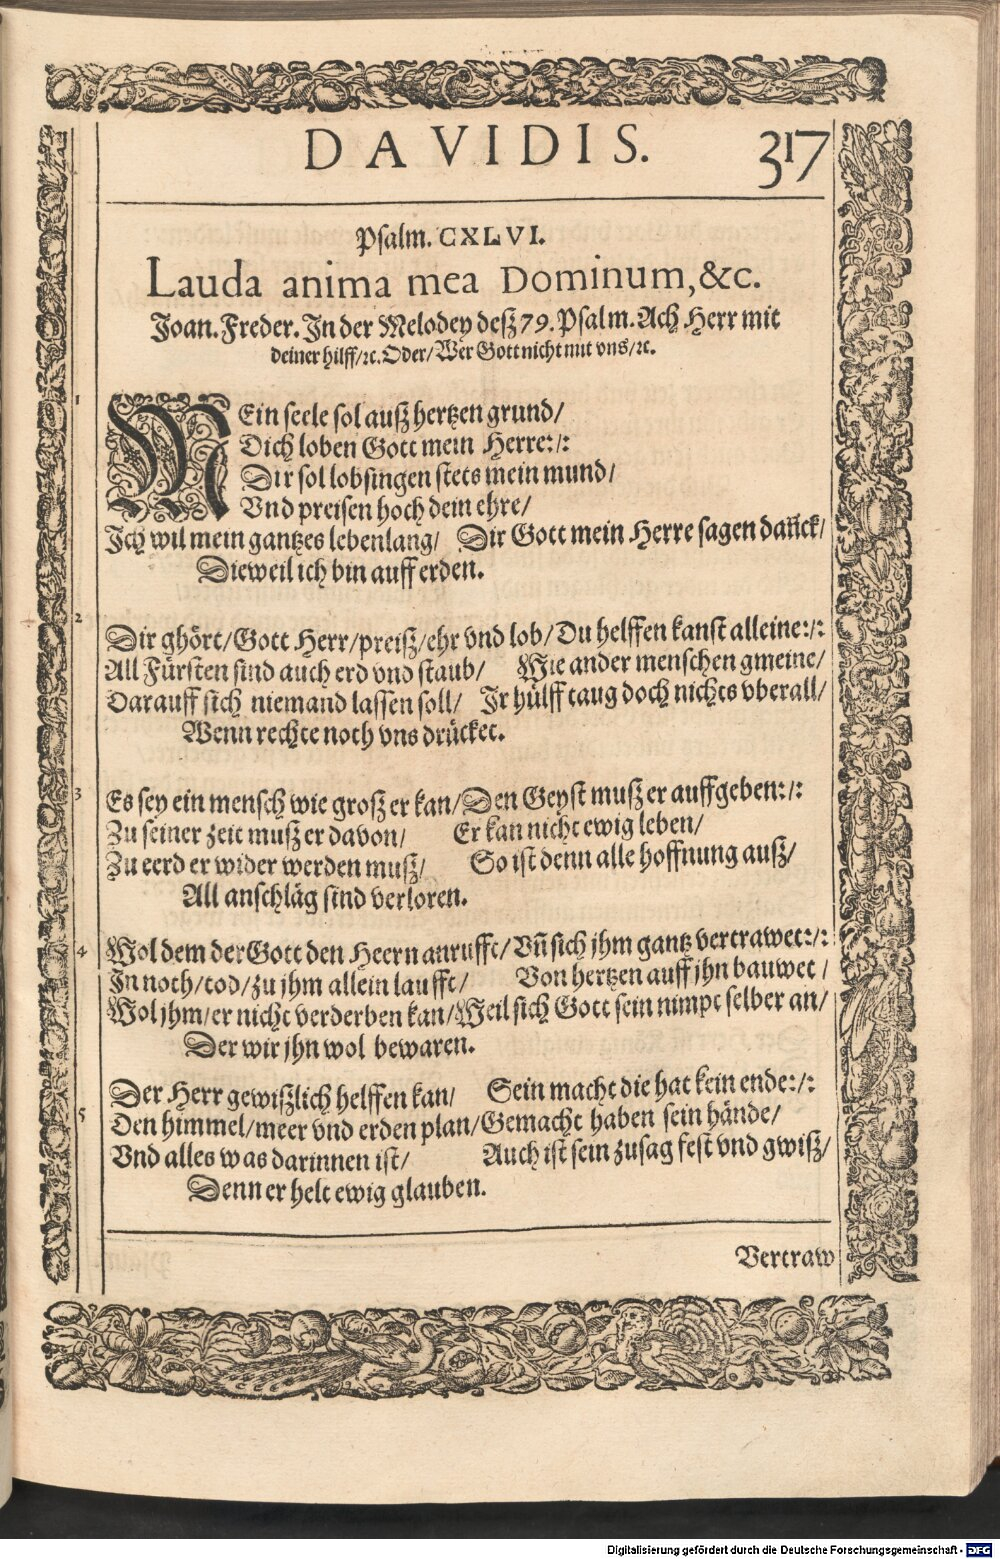 DAVIDIS. 317
Psalm. CXLVI.
Lauda anima mea Dominum, &c.
Joan. Freder. In der Melodey desz 79. Psalm. Ach Herr mit
deiner hilff/ꝛc. Oder/Wer Gott nicht mit vns/ꝛc.
1 MEin seele sol ausz hertzen grund/
Dich loben Gott mein Herre:/:
Dir sol lobsingen stets mein mund/
Vnd preisen hoch dein ehre/
Ich wil mein gantzes lebenlang/ Dir Gott mein Herre sagen dañck/
Dieweil ich bin auff erden.
2 Dir ghört/Gott Herr/preisz/ehr vnd lob/Du helffen kanst alleine:/:
All Fürsten sind auch erd vnd staub/ Wie ander menschen gmeine/
Darauff sich niemand lassen soll/ Ir hülff taug doch nichts vberall/
Wenn rechte noth vns drücket.
3 Es sey ein mensch wie grosz er kan/Den Geyst musz er auffgeben:/:
Zu seiner zeit musz er davon/ Er kan nicht ewig leben/
Zu eerd er wider werden musz/ So ist denn alle hoffnung ausz/
All anschläg sind verloren.
4 Wol dem der Gott den Heern anrufft/Vñ sich jhm gantz vertrawet:/:
In noth/tod/zu jhm allein laufft/ Von hertzen auff jhn bauwet/
Wol jhm/er nicht verderben kan/Weil sich Gott sein nimpt selber an/
Der wir jhn wol bewaren.
5 Der Herr gewiszlich helffen kan/ Sein macht die hat kein ende:/:
Den himmel/meer vnd erden plan/Gemacht haben sein hände/
Vnd alles was darinnen ist/ Auch ist sein zusag fest vnd gwisz/
Denn er helt ewig glauben.
Vertraw
Digitalisierung gefördert durch die Deutsche Forschungsgemeinschaft - DFG